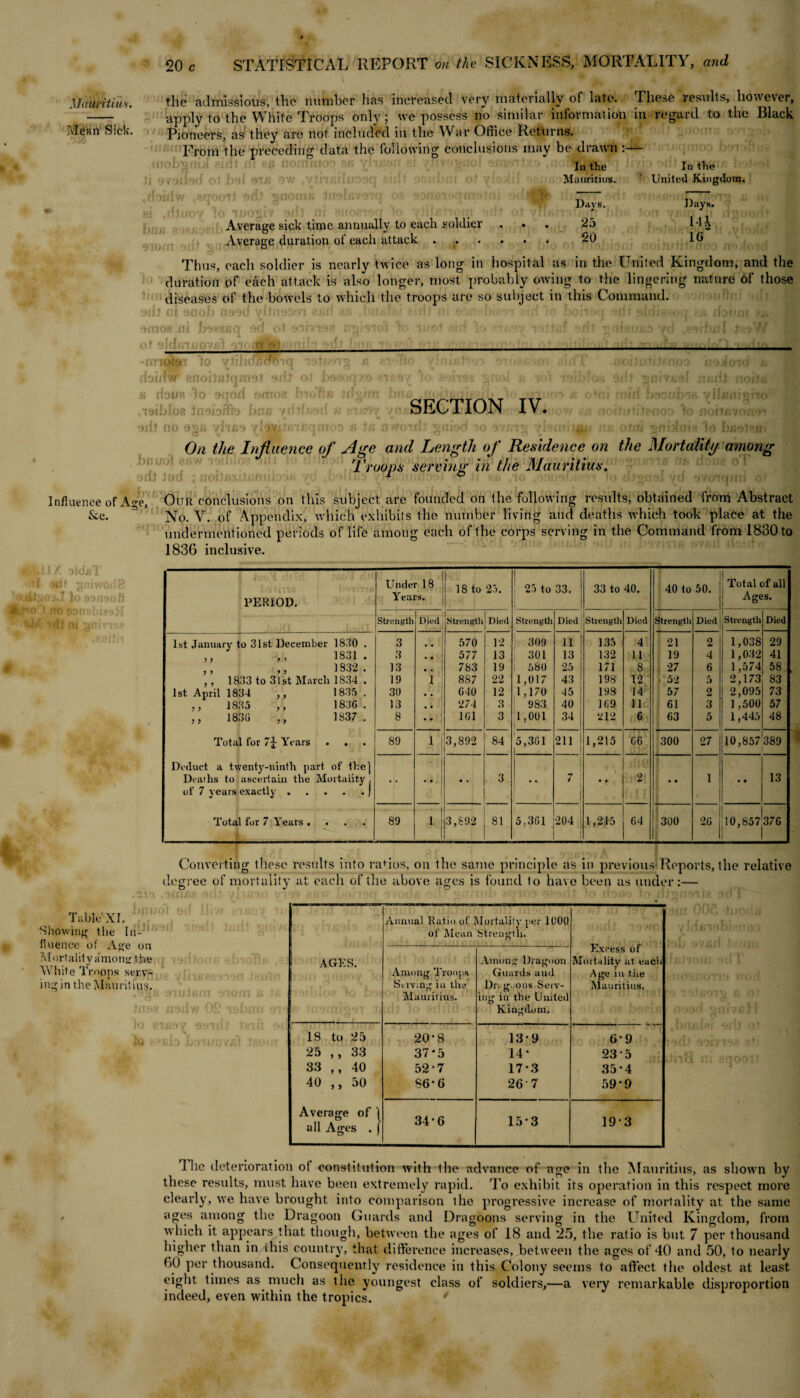 20 c STATISTICAL REPORT on the SICKNESS, MORTALITY, and
Mauritius.
Mean Sick.
the admissions, the number has increased very materially of late. These results, however,
apply to the White Troops only; we possess no similar information in regard to the Black
Pioneers, as they are not included in the War Office Returns.
From the preceding data the following conclusions may be drawn :—
In the Mauritius. In the United Kingdom.
Days. Days.
Average sick time annually to each soldier . . . 25 14½
Average duration of each attack . . . . . . 20 16
Thus, each soldier is nearly twice as long in hospital as in the United Kingdom, and the
duration of each attack is also longer, most probably owing to the lingering nature of those
diseases of the bowels to which the troops are so subject in this Command.
SECTION IV.
On the Influence of Age and Length of Residence on the Mortality among
Troops serving in the Mauritius.
Influence of Age,
&c.
Our conclusions on this subject are founded on the following results, obtained from Abstract
No. V. of Appendix, which exhibits the number living and deaths which took place at the
undermentioned periods of life among each of the corps serving in the Command from 1830 to
1836 inclusive.
PERIOD. Under 18 Years. 18 to 25. 25 to 33. 33 to 40. 40 to 50. Total of all Ages.
Strength Died Strength Died Strength Died Strength Died Strength Died Strength Died
1st January to 31st December 1830 . 3 .. 570 12 309 11 135 4 21 2 1,038 29
,, ,, 1831 . 3 .. 577 13 301 13 132 11 19 4 1,032 41
,, ,, 1832 . 13 .. 783 19 580 25 171 8 27 6 1,574 58
,, 1833 to 31st March 1834 . 19 1 887 22 1,017 43 198 12 52 5 2,173 83
1st April 1834 ,, 1835 . 30 .. 640 12 1,170 45 198 14 57 2 2,095 73
,, 1835 ,, 1836 . 13 .. 274 3 983 40 169 11 61 3 1,500 57
,, 1836 ,, 1837 . 8 .. 161 3 1,001 34 212 6 63 5 1,445 48
Total for 7¼ Years . . . 89 1 3,892 84 5,361 211 1,215 66 300 27 10,857 389
Deduct a twenty-ninth part of the
Deaths to ascertain the Mortality
of 7 years exactly . . . . . .. .. .. 3 .. 7 .. 2 .. 1 .. 13
Total for 7 Years . . . . 89 1 3,892 81 5,361 204 1,215 64 300 26 10,857 376
Converting these results into ratios, on the same principle as in previous Reports, the relative
degree of mortality at each of the above ages is found to have been as under :—
Table XI.
Showing the In-
fluence of Age on
Mortality among the
White Troops serv-
ing in the Mauritius.
AGES. Annual Ratio of Mortality per 1000 of Mean Strength. Excess of Mortality at each Age in the Mauritius.
Among Troops Serving in the Mauritius. Among Dragoon Guards and Dragoons Serving in the United Kingdom.
18 to 25 20·8 13·9 6·9
25 ,, 33 37·5 14· 23·5
33 ,, 40 52·7 17·3 35·4
40 ,, 50 86·6 26·7 59·9
Average of all Ages . 34·6 15·3 19·3
The deterioration of constitution with the advance of age in the Mauritius, as shown by
these results, must have been extremely rapid. To exhibit its operation in this respect more
clearly, we have brought into comparison the progressive increase of mortality at the same
ages among the Dragoon Guards and Dragoons serving in the United Kingdom, from
which it appears that though, between the ages of 18 and 25, the ratio is but 7 per thousand
higher than in this country, that difference increases, between the ages of 40 and 50, to nearly
60 per thousand. Consequently residence in this Colony seems to affect the oldest at least
eight times as much as the youngest class of soldiers,—a very remarkable disproportion
indeed, even within the tropics.